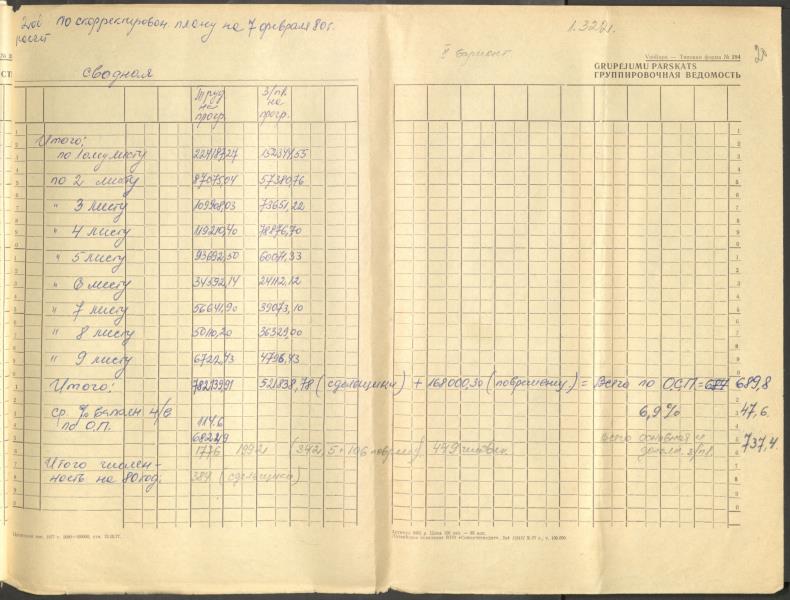 2ой по скорректирован. плану на 7 февраля 80 г.
расчёт
1.32
II вариант
Veidlapa — Типовая форма № 294
GRUPĒJUMU PĀRSKATS
ГРУППИРОВОЧНАЯ ВЕДОМОСТЬ
Сводная
Труд на прогр. З/пл. на прогр.
Итого:
по 1 ому листу 152344,55
по 2 листу 87075,04 57380,76
" 3 листу 109908,03 73651,22
" 4 листу 119210,40 78876,70
" 5 листу 93692,50 60071,33
" 6 листу 34392,14 24112,12
" 7 листу 56641,90 39073,10
" 8 листу 50110,20 36329,00
" 9 листу 6722,43 4796,43
Итого: 782139,91 521838,78 (сдельщики) + 168000,30 (повременщ.) = Всего по О.С.П. = 689,8
ср. % выполн. н/в 6,9% 47,6
по О.П. 114,6
682219
1776 1992,1 (342,5 + 106 поврем) 449 человек Всего основная и дополн. з/пл. 737,4
Итого числен-
ность на 80 год: 384 (сдельщика)